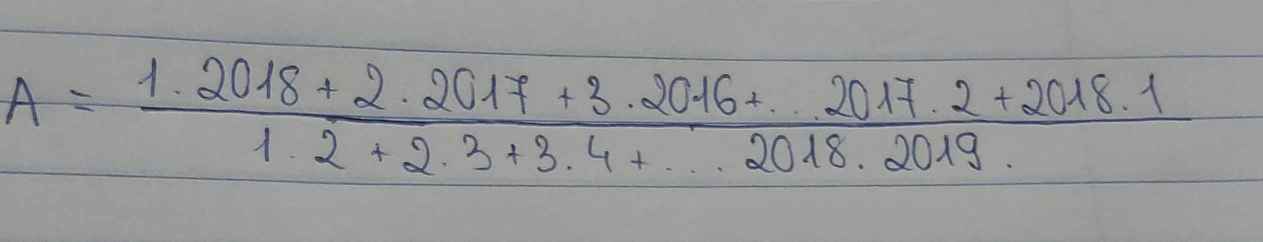 A = 1.2018 + 2.2017 + 3.2016 + ... 2017.2 + 2018.1
1.2 + 2.3 + 3.4 + ... 2018.2019.